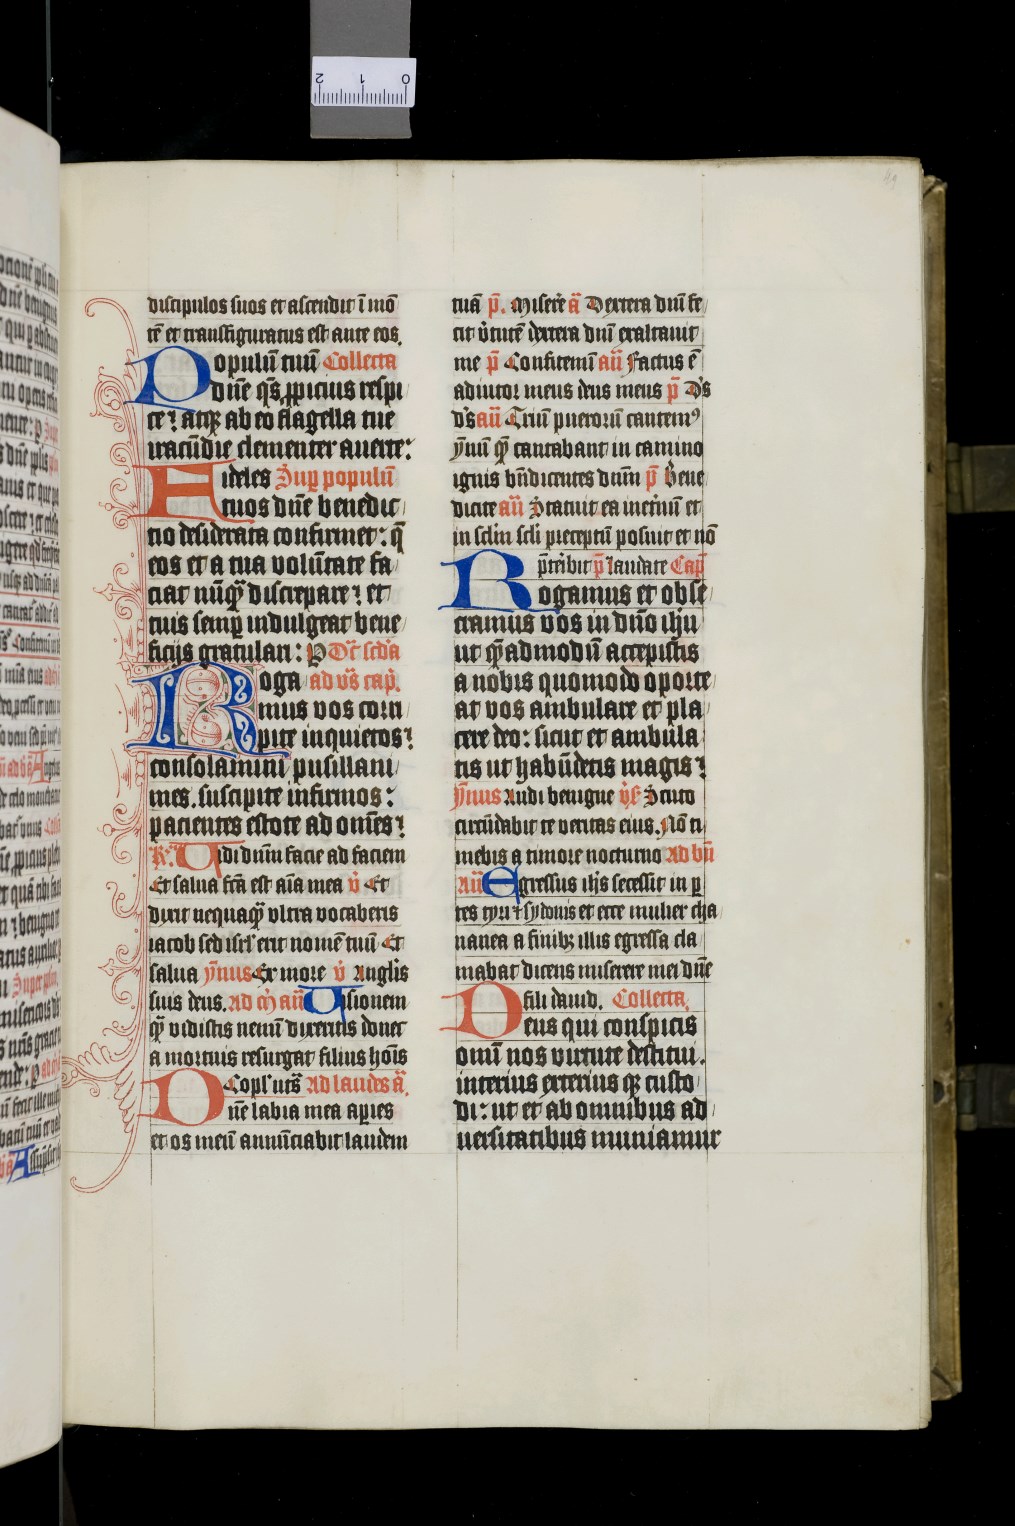 discipulos suos et ascendit ī mō
tē et transfiguratus est ante eos.
Populū tuū Collecta
dñe qs̄ ppicius respi
ce: atqꝫ ab eo flagella tue
iracūdie clementer auerte:
Fideles Sup populū
tuos dñe benedic
tio desiderata confirmet: q̄
eos et a tua volūtate fa
ciat nūq̄ discrepare: et
tuis semp indulgeat bene
ficijs gratulari: Dōīca scd̄a
Roga ad vs̄ cap.
mus vos corri
pite inquietos:
consolamini pusillani
mes. suscipite infirmos:
pacientes estote ad omēs:
R. Vidi dnm facie ad faciem
Et salua fc̄a est aīa mea v̄ Et
dixit nequaq̄ vltra vocaberis
iacob sed isrl' erit nomē tuū Et
salua ȳnus Ex more v̄ Angl̄is
suis deus. Ad m̄ añ Visionem
q̄ vidistis nemī dixeritis donec
a mortuis resurgat filius hoīs
Copl' ut s̄ Ad laudes ā.
Dñe labia mea apies
et os meū annūciabit laudem
tuā p̄. Miserē ā Dextera dnī fe
cit v̄tutē dextera dnī exaltauit
me p̄ Confitemī añ Factus ē
adiutor meus deus meus p̄ D's
d's añ Triū puerorū cantem⁹
ȳnū q̄ cantabant in camino
ignis bn̄dicentes dnm p̄ Bene
dicite añ Statuit ea inet̄nū et
in sclm scli preceptū posuit et nō
p̄teribit p̄ laudate Cap
Rogamus et obse
cramus vos in dn̄o ihū
ut q̄admodū accepistis
a nobis quomodo oporte
at vos ambulare et pla
cere deo: sicut et ambula
tis ut habūdetis magis:
ȳnus Audi benigne v̄s Scuto
circūdabit te veritas eius. Nō ti
mebis a timore nocturno Ad bn̄
Añ Egressus ihs secessit in p
tes tyri et sydonis et ecce mulier cha
nanea a finibꝫ illis egressa cla
mabat dicens miserere mei dn̄e
fili dauid. Collecta.
Deus qui conspicis
omī nos virtute destitui.
interius exterius qꝫ custo
di: ut et ab omnibus ad
uersitatibus muniamur